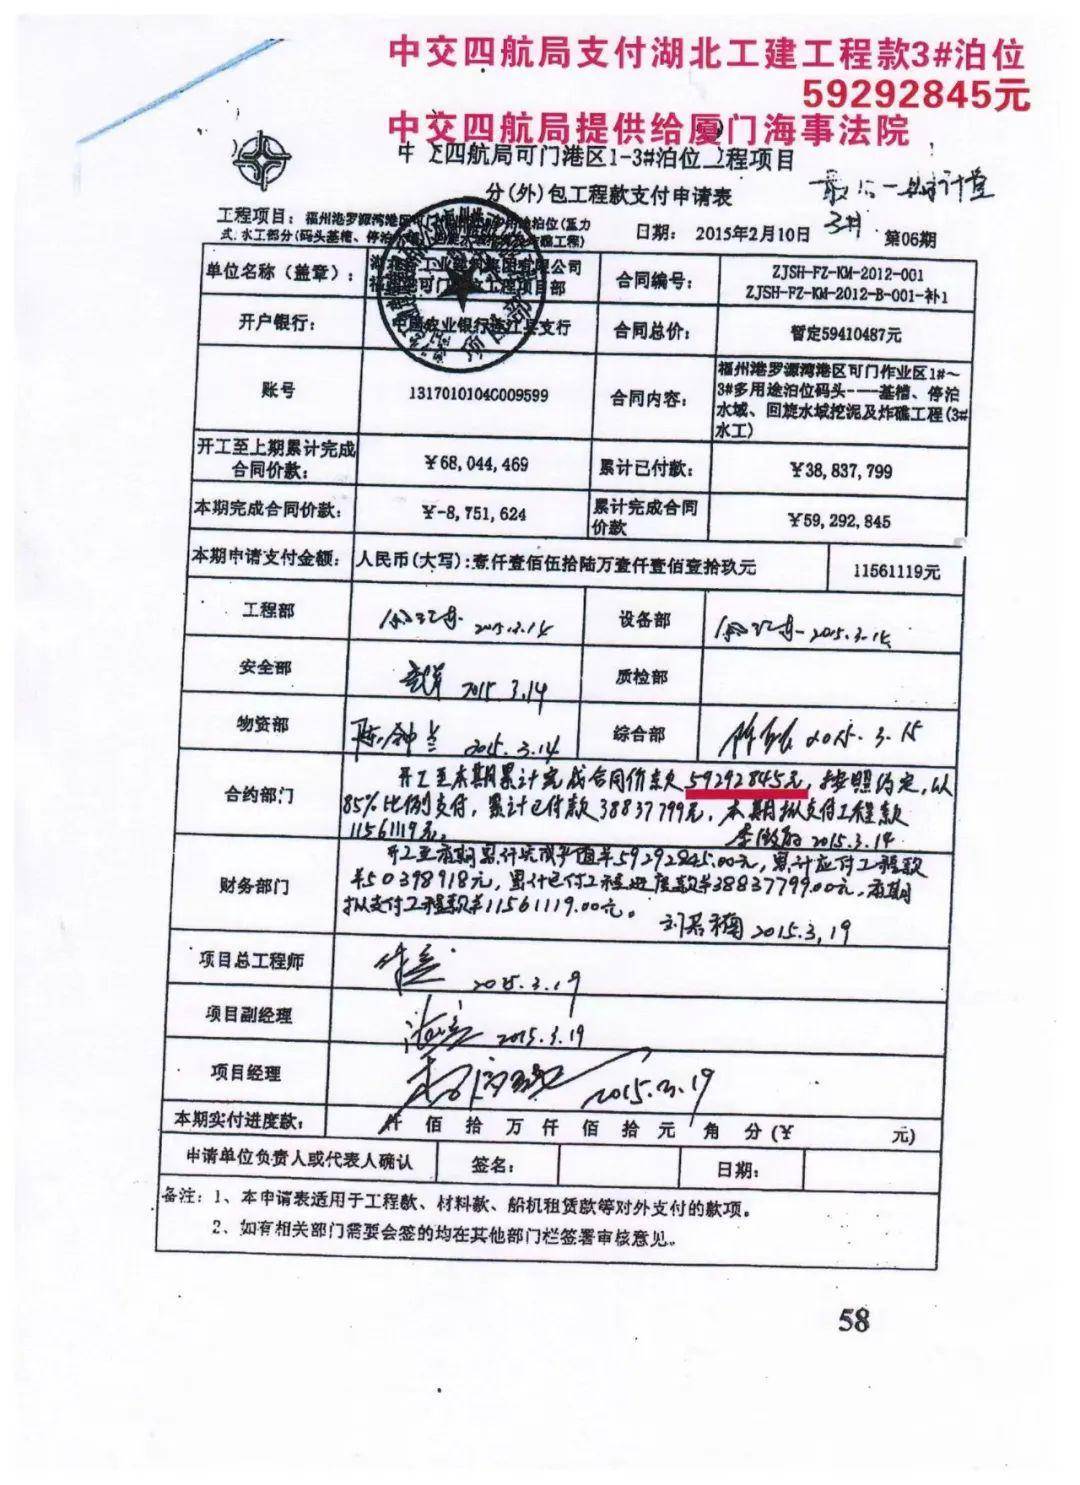 中交四航局支付湖北工建工程款3#泊位
59292845元
中交四航局提供给厦门海事法院
中交四航局可门港区1-3#泊位工程项目
分(外)包工程款支付申请表
3#
日期： 2015年2月10日
第06期
单位名称（盖章）：
合同编号：
ZJSH-FZ-KM-2012-001
ZJSH-FZ-KM-2012-B-001-补1
开户银行：
中国农业银行连江县支行
合同总价：
暂定59410487元
账号
13170101040009599
合同内容：
福州港罗源湾港区可门作业区1#～
3#多用途泊位码头----基槽、停泊
水域、回旋水域挖泥及炸礁工程(3#
水工)
开工至上期累计完成
合同价款：
￥68,044,469
累计已付款：
￥38,837,799
本期完成合同价款：
￥-8,751,624
累计完成合同
价款
￥59,292,845
本期申请支付金额：
人民币(大写):壹仟壹佰伍拾陆万壹仟壹佰壹拾玖元
11561119元
工程部
2015.3.14
设备部
2015.3.14
安全部
2015 3.14
质检部
物资部
2015.3.14
综合部
2015.3.15
合约部门
开工至本期累计完成合同价款59292845元，按照约定，以
85%比例支付，累计已付款38837799元，本期拟支付工程款
11561119元。
2015.3.14
财务部门
开工至本期累计完成产值￥59292845.00元，累计应付工程款
￥50398918元，累计已付工程进度款￥38837799.00元，本期
拟支付工程款￥11561119.00元。
2015.3.19
项目总工程师
2015.3.19
项目副经理
2015.3.19
项目经理
2015.3.19
本期实付进度款：
仟 佰 拾 万 仟 佰 拾 元 角 分(￥ 元)
申请单位负责人或代表人确认
签名：
日期：
备注：1、本申请表适用于工程款、材料款、船机租赁款等对外支付的款项。
2、如有相关部门需要会签的均在其他部门栏签署审核意见。
58